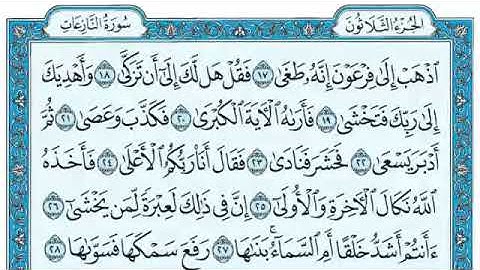 الجُزءُ الثَّلَاثُونَ سُورَةُ النَّازِعَاتِ
ٱذۡهَبۡ إِلَىٰ فِرۡعَوۡنَ إِنَّهُۥ طَغَىٰ ١٧ فَقُلۡ هَل لَّكَ إِلَىٰٓ أَن تَزَكَّىٰ ١٨ وَأَهۡدِيَكَ
إِلَىٰ رَبِّكَ فَتَخۡشَىٰ ١٩ فَأَرَىٰهُ ٱلۡأٓيَةَ ٱلۡكُبۡرَىٰ ٢٠ فَكَذَّبَ وَعَصَىٰ ٢١ ثُمَّ
أَدۡبَرَ يَسۡعَىٰ ٢٢ فَحَشَرَ فَنَادَىٰ ٢٣ فَقَالَ أَنَا۠ رَبُّكُمُ ٱلۡأَعۡلَىٰ ٢٤ فَأَخَذَهُ
ٱللَّهُ نَكَالَ ٱلۡأٓخِرَةِ وَٱلۡأُولَىٰٓ ٢٥ إِنَّ فِي ذَٰلِكَ لَعِبۡرَةٗ لِّمَن يَخۡشَىٰٓ ٢٦
ءَأَنتُمۡ أَشَدُّ خَلۡقًا أَمِ ٱلسَّمَآءُۚ بَنَىٰهَا ٢٧ رَفَعَ سَمۡكَهَا فَسَوَّىٰهَا ٢٨